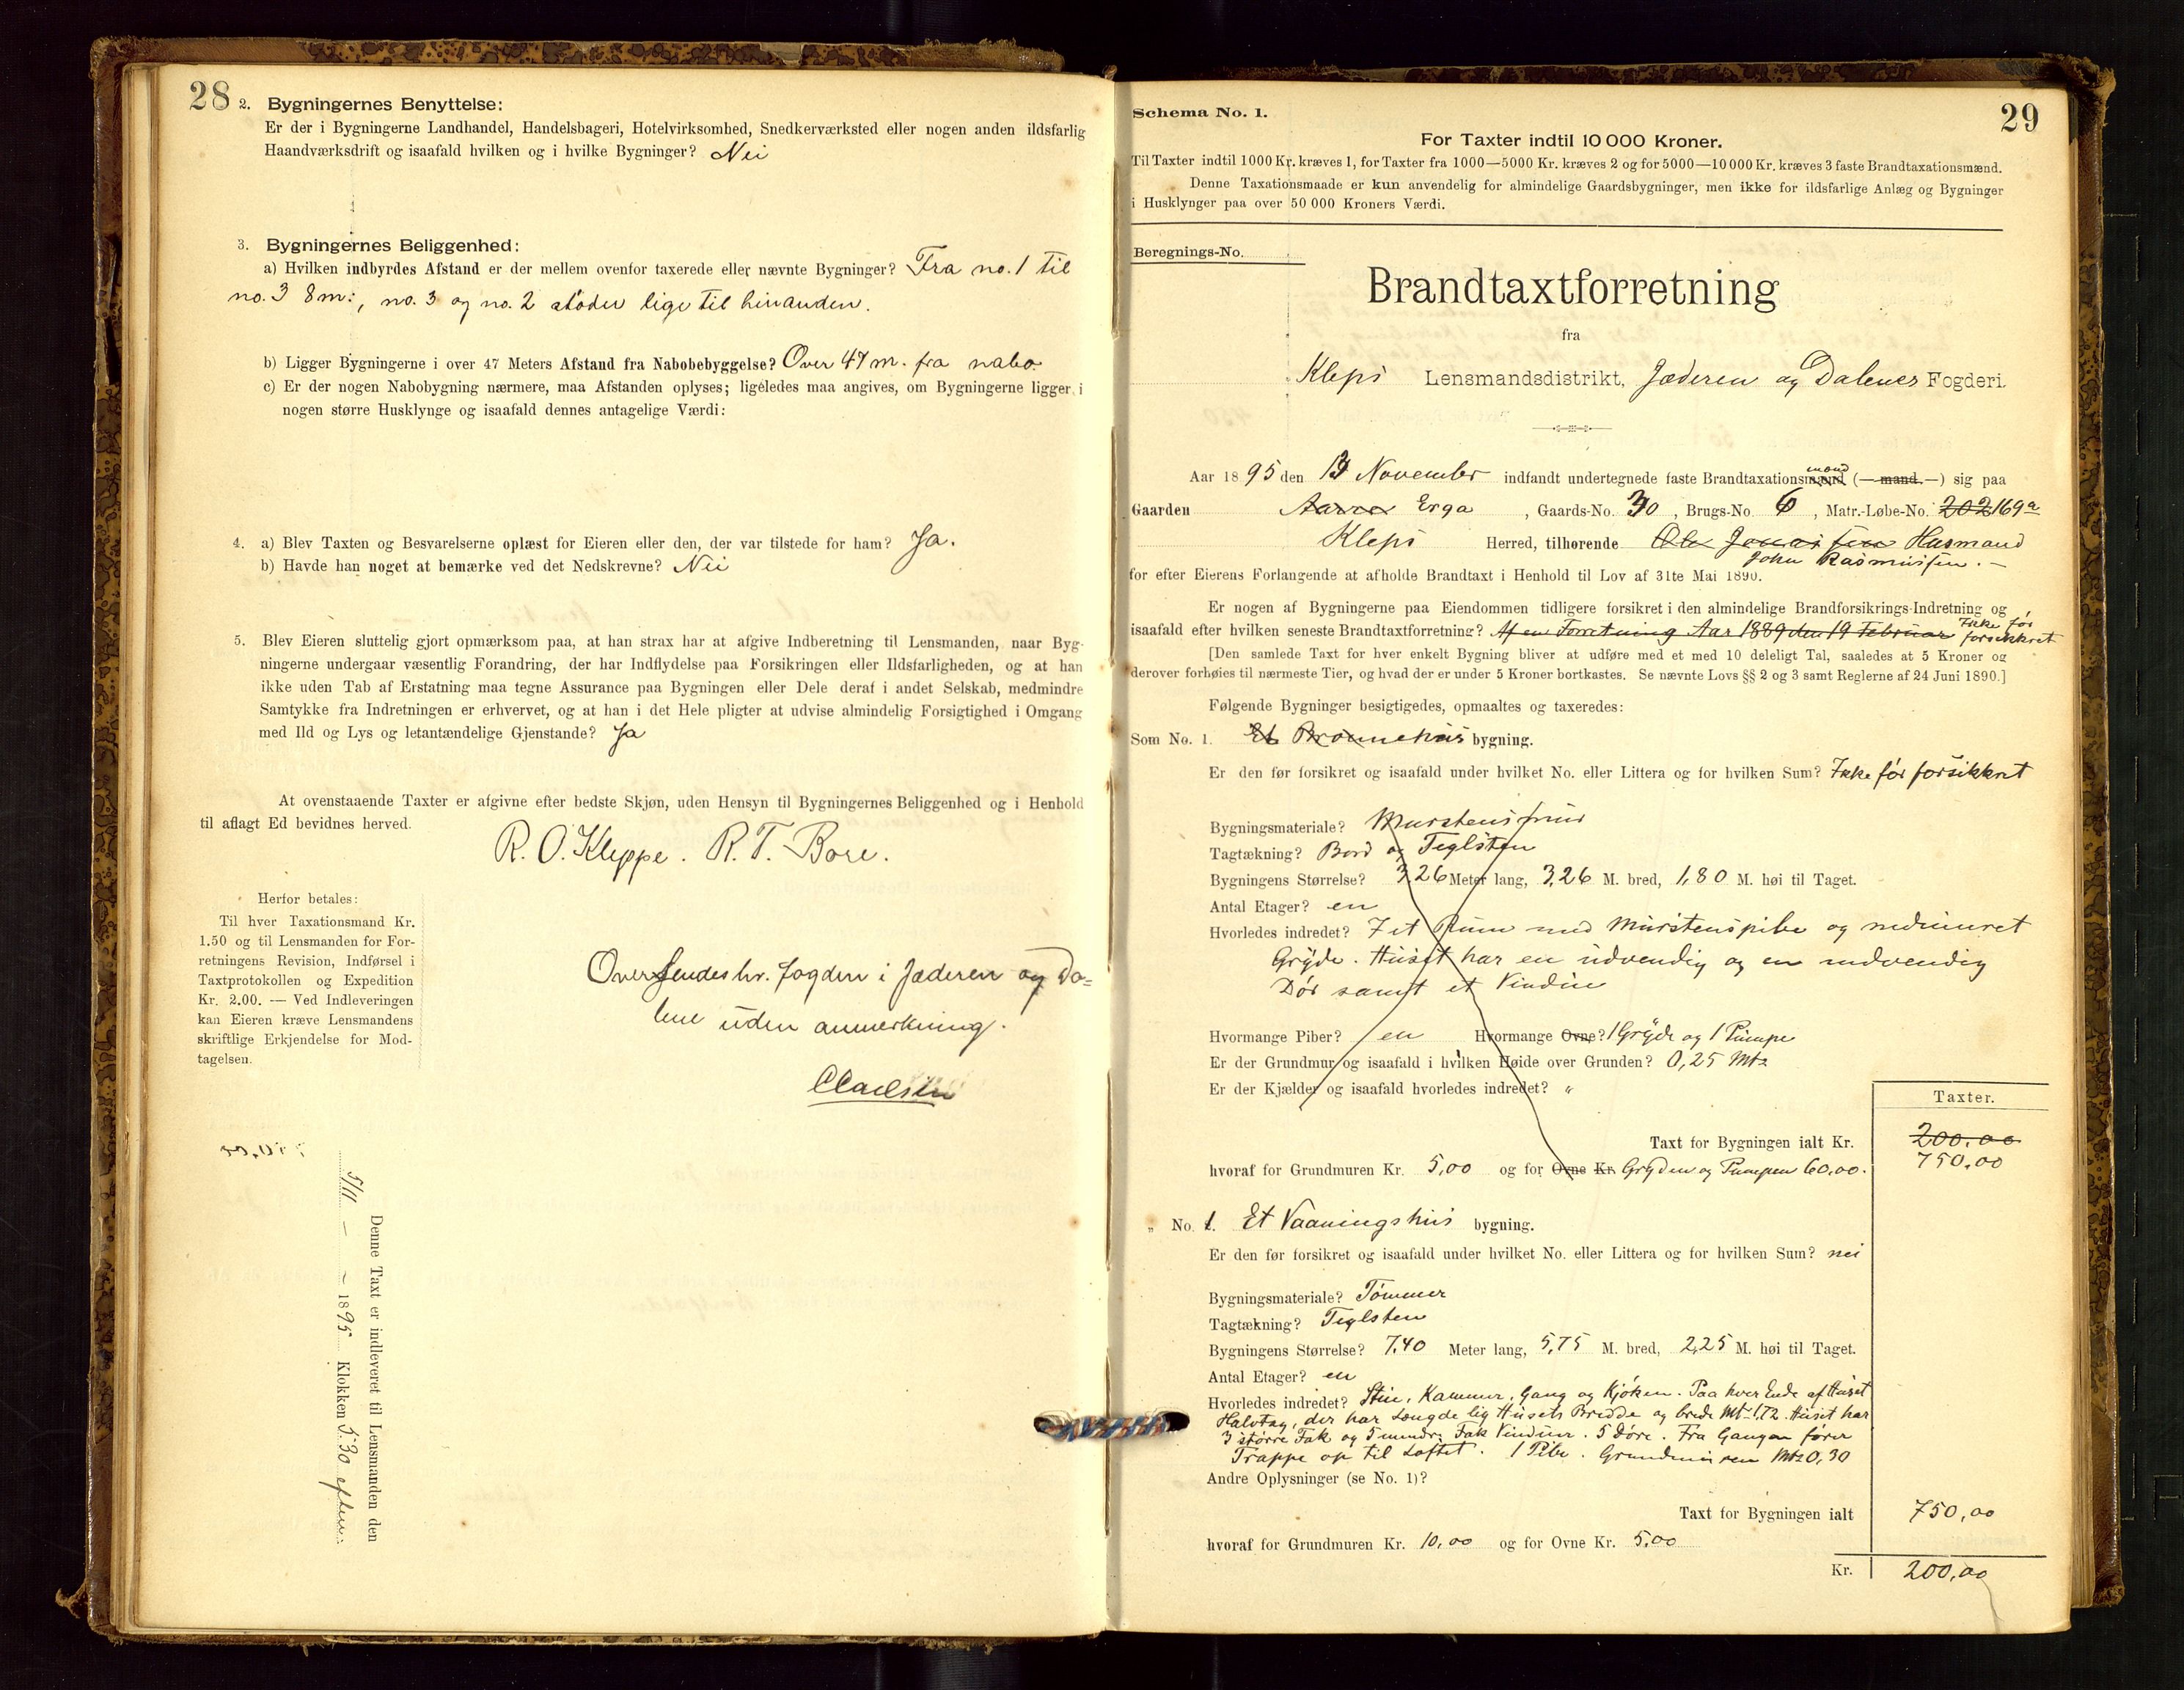 28
2. Bygningernes Benyttelse:
Er der i Bygningerne Landhandel, Handelsbageri, Hotelvirksomhed, Snedkerværksted eller nogen anden ildsfarlig
Haandværksdrift og isaafald hvilken og i hvilke Bygninger? Nei
3. Bygningernes Beliggenhed:
a) Hvilken indbyrdes Afstand er der mellem ovenfor taxerede eller nævnte Bygninger? Fra no. 1 til
no. 3 8 m:, no. 3 og no. 2 støder lige til hinanden.
b) Ligger Bygningerne i over 47 Meters Afstand fra Nabobebyggelse? Over 47 m. fra nabo
c) Er der nogen Nabobygning nærmere, maa Afstanden oplyses; ligeledes maa angives, om Bygningerne ligger i
nogen større Husklynge og isaafald dennes antagelige Værdi:
4. a) Blev Taxten og Besvarelserne oplæst for Eieren eller den, der var tilstede for ham? Ja.
b) Havde han noget at bemærke ved det Nedskrevne? Nei
5. Blev Eieren sluttelig gjort opmærksom paa, at han strax har at afgive Indberetning til Lensmanden, naar Byg-
ningerne undergaar væsentlig Forandring, der har Indflydelse paa Forsikringen eller Ildsfarligheden, og at han
ikke uden Tab af Erstatning maa tegne Assurance paa Bygningen eller Dele deraf i andet Selskab, medmindre
Samtykke fra Indretningen er erhvervet, og at han i det Hele pligter at udvise almindelig Forsigtighed i Omgang
med Ild og Lys og letantændelige Gjenstande? Ja
At ovenstaaende Taxter er afgivne efter bedste Skjøn, uden Hensyn til Bygningernes Beliggenhed og i Henhold
til aflagt Ed bevidnes herved.
R. O. Kleppe. R. T. Bore.
Herfor betales:
Til hver Taxationsmand Kr.
1.50 og til Lensmanden for For-
retningens Revision, Indførsel i
Taxtprotokollen og Expedition
Kr. 2.00. — Ved Indleveringen
kan Eieren kræve Lensmandens
skriftlige Erkjendelse for Mod-
tagelsen.
Oversendes hr. fogden i Jæderen og Da-
lene uden anmerkning.
Claelsen
Denne Taxt er indleveret til Lensmanden den
5/11 — 1895 Klokken 5.30 eftm:
29
Schema No. 1.
For Taxter indtil 10 000 Kroner.
Til Taxter indtil 1000 Kr. kræves 1, for Taxter fra 1000—5000 Kr. kræves 2 og for 5000—10 000 Kr. kræves 3 faste Brandtaxationsmænd.
Denne Taxationsmaade er kun anvendelig for almindelige Gaardsbygninger, men ikke for ildsfarlige Anlæg og Bygninger
i Husklynger paa over 50 000 Kroners Værdi.
Beregnings-No.
Brandtaxtforretning
fra
Kleps Lensmandsdistrikt, Jæderen og Dalenes Fogderi.
Aar 1895 den 13 November indfandt undertegnede faste Brandtaxationsmænd mand (— mand —) sig paa
Gaarden Aarre Erga, Gaards-No. 30, Brugs-No. 6, Matr.-Løbe-No. 202 169a
Kleps Herred, tilhørende Ole Jonassen Husmand
John Rasmussen. —
for efter Eierens Forlangende at afholde Brandtaxt i Henhold til Lov af 31te Mai 1890.
Er nogen af Bygningerne paa Eiendommen tidligere forsikret i den almindelige Brandforsikrings-Indretning og
isaafald efter hvilken seneste Brandtaxtforretning? Af en Forretning Aar 1889 den 19 Februar Ikke før forsikkret
[Den samlede Taxt for hver enkelt Bygning bliver at udføre med et med 10 deleligt Tal, saaledes at 5 Kroner og
derover forhøies til nærmeste Tier, og hvad der er under 5 Kroner bortkastes. Se nævnte Lovs §§ 2 og 3 samt Reglerne af 24 Juni 1890.]
Følgende Bygninger besigtigedes, opmaaltes og taxeredes:
Som No. 1. Et Brønnehus bygning.
Er den før forsikret og isaafald under hvilket No. eller Littera og for hvilken Sum? Ikke før forsikkret
Bygningsmateriale? Murstensmur
Tagtækning? Bord og Teglsten
Bygningens Størrelse? 3,26 Meter lang, 3,26 M. bred, 1,80 M. høi til Taget.
Antal Etager? en
Hvorledes indredet? I et Rum med Murstenspibe og nedmuret
Gryde. Huset har en udvendig og en indvendig
Dør samt et Vindue
Hvormange Piber? en Hvormange Ovne? 1 Gryde og 1 Pumpe
Er der Grundmur og isaafald i hvilken Høide over Grunden? 0,25 Mtr
Er der Kjælder og isaafald hvorledes indredet? "
Taxter.
Taxt for Bygningen ialt Kr. 200.00
750,00
hvoraf for Grundmuren Kr. 5,00 og for Ovne Kr. Gryden og Pumpen 60,00.
" No. 1. Et Vaaningshus bygning.
Er den før forsikret og isaafald under hvilket No. eller Littera og for hvilken Sum? nei
Bygningsmateriale? Tømmer
Tagtækning? Teglsten
Bygningens Størrelse? 7,40 Meter lang, 5,75 M. bred, 2,25 M. høi til Taget.
Antal Etager? en
Hvorledes indredet? Stue, Kammer, Gang og Kjøken. Paa hver Ende af Huset
Halvtag, der har Længde lig Husets Bredde og brede Mtr 1,72. Huset har
3 større Fak og 5 mindre Fak Vinduer. 5 Døre. Fra Gangen fører
Trappe op til Loftet. 1 Pibe. Grundmuren Mtr 0,30
Andre Oplysninger (se No. 1)?
Taxt for Bygningen ialt 750,00
hvoraf for Grundmuren Kr. 10,00 og for Ovne Kr. 5,00
Kr. 200,00